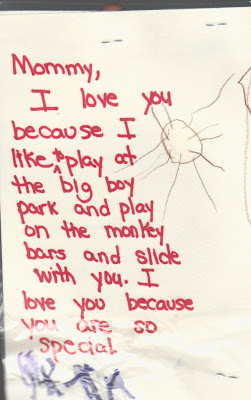 Mommy,
I love you
because I
like to play at
the big boy
park and play
on the monkey
bars and slide
with you. I
love you because
you are so
special